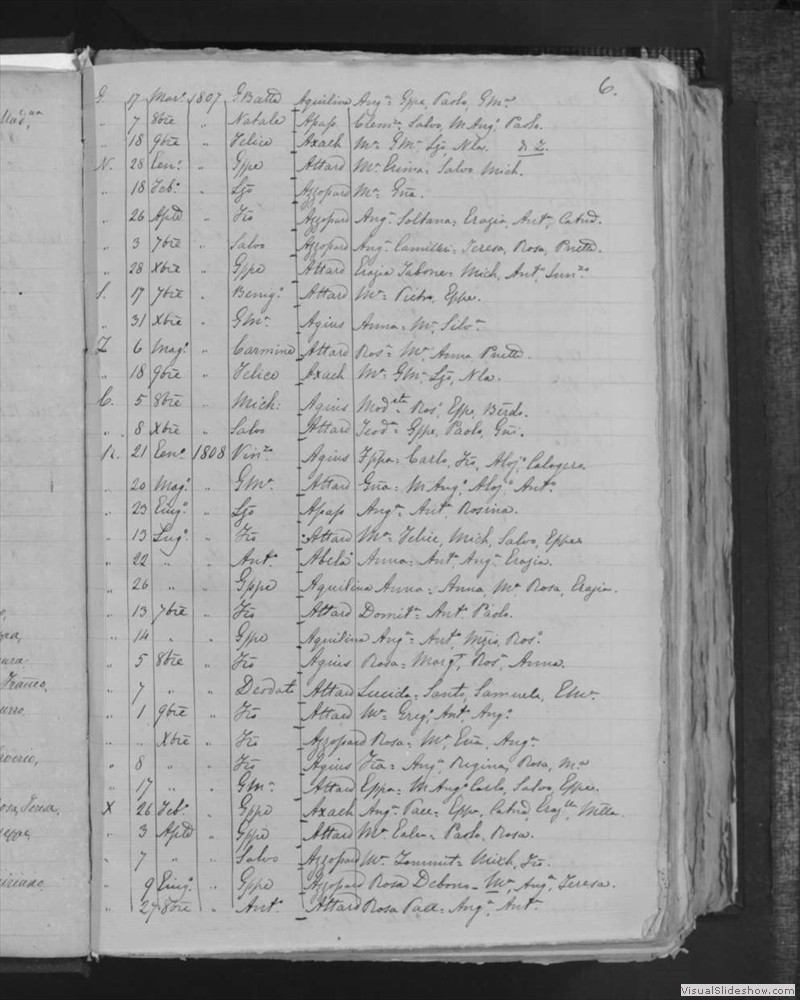 6.
G. 17 Mar. 1807 GBatta Aquilina Ang.a Gppe, Paolo, GM.a
" 7 8bre " Natale Apap Clem.a Salvo, M Ang.a Paolo.
" 18 9bre " Felice Axach M.a GM.a Lzo, Nla. & Z.
N. 28 Gen.o " Gppe Attard M.a Salvo Mich.
" 18 Feb.o " Lzo Azzopard M.a Gna.
" 26 Aple " Fco Azzopard Ang.a Soltana= Grazia, Ant.a Catnd.
" 3 7bre " Salvo Azzopard Ang.a Camilleri= Teresa, Rosa, Pnette.
" 28 Xbre " Gppe Attard Grazia Tabone= Mich, Ant.o
S. 17 7bre " Benig.o Attard M.a Pietro, Gppe.
" 31 Xbre " GM.a Agius Anna= M.a Silv.a
Z 6 Mag.o " Carmine Attard Ros.a M.a Anna Pnette.
" 18 9bre " Felice Axach M.a GM.a Lzo, Nla.
C. 5 8bre " Mich: Agius Mod.sta Ros.o Gppe, Berdo.
" 8 Xbre " Salvo Attard Teod.a Gppe, Paolo, Gni.
R. 21 Gen.o 1808 Vin.zo Agius Fppa= Carlo, Fco, Aloj.o Calogero.
" 20 Mag.o " GM.a Attard Gna= M Ang.o Aloj.o Ant.o
" 23 Giug.o " Lzo Apap Ang.a Ant.a Rosina.
" 13 Lug.o " Fco Attard M.a Felice, Mich, Salvo, Gppe.
" 22 " " Ant.o Abela Anna= Ant.o Ang.a Grazia.
" 26 " " Gppe Aquilina Anna= Anna, M.a Rosa, Grazia.
" 13 7bre " Fco Attard Domit.a Ant.o Paolo.
" 14 " " Gppe Aquilina Ang.a Ant.o Ros.o
" 5 8bre " Fco Agius Rosa= Marg.t Ros.o Anna.
" 7 " " Deodato Attard Lucida= Santo, Samuele,
" 1 9bre " Fco Attard M.a Greg.o Ant.o Ang.o
" " Xbre " Fco Azzopard Rosa= M.a Ang.a
" 8 " " Fco Agius Fca= Ang.a Regina, Rosa, M.a
" 17 " " GM.a Attard Gppa= M Ang.o Carlo, Salvo, Gppe.
X 26 Feb.o " Gppe Axach Ang.a Pace= Gppe, Catnd,
" 3 Aple " Gppe Attard M.a Paolo, Rosa.
" 7 " " Salvo Azzopard M.a Mich, Fco.
" 9 Giug.o " Gppe Azzopard Rosa Debono= M.a Ang.a Teresa.
" 27 8bre " Ant.o Attard Rosa Pace= Ang.a Ant.o
Franco,
Rosa, Teresa,
VisualSlideshow.com